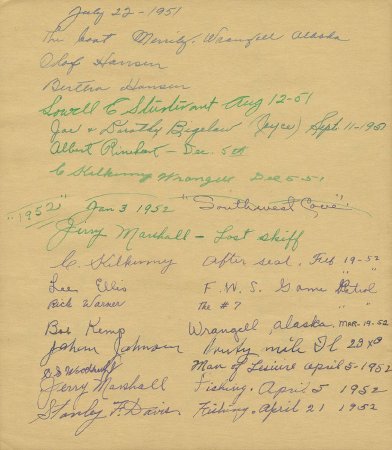 July 22-1951
The boat Merrily, Wrangell Alaska
Olaf Hansen
Bertera Hansen
Lowell C Sturtivant Aug 12-51
Joe & Dorothy Bigelow (Joyce) Sept. 11-1951
Albert Rinehart - Dec. 5th
C Kilkenny Wrangell Dec 5-51
"1952" Jan 3 1952 "Southwest Cove"
Jerry Marshall - Lost skiff
C. Kilkenny After seal. Feb 19-52
Lee Ellis F.W.S. Game Patrol " "
Rick Warner The #7 " "
Bob Kemp Wrangell Alaska. MAR-19-52
Johnson
Man of Leisure april 5-1952
Jerry Marshall Fishing. April 5 1952
Stanley F. Davis. Fishing. April 21 1952